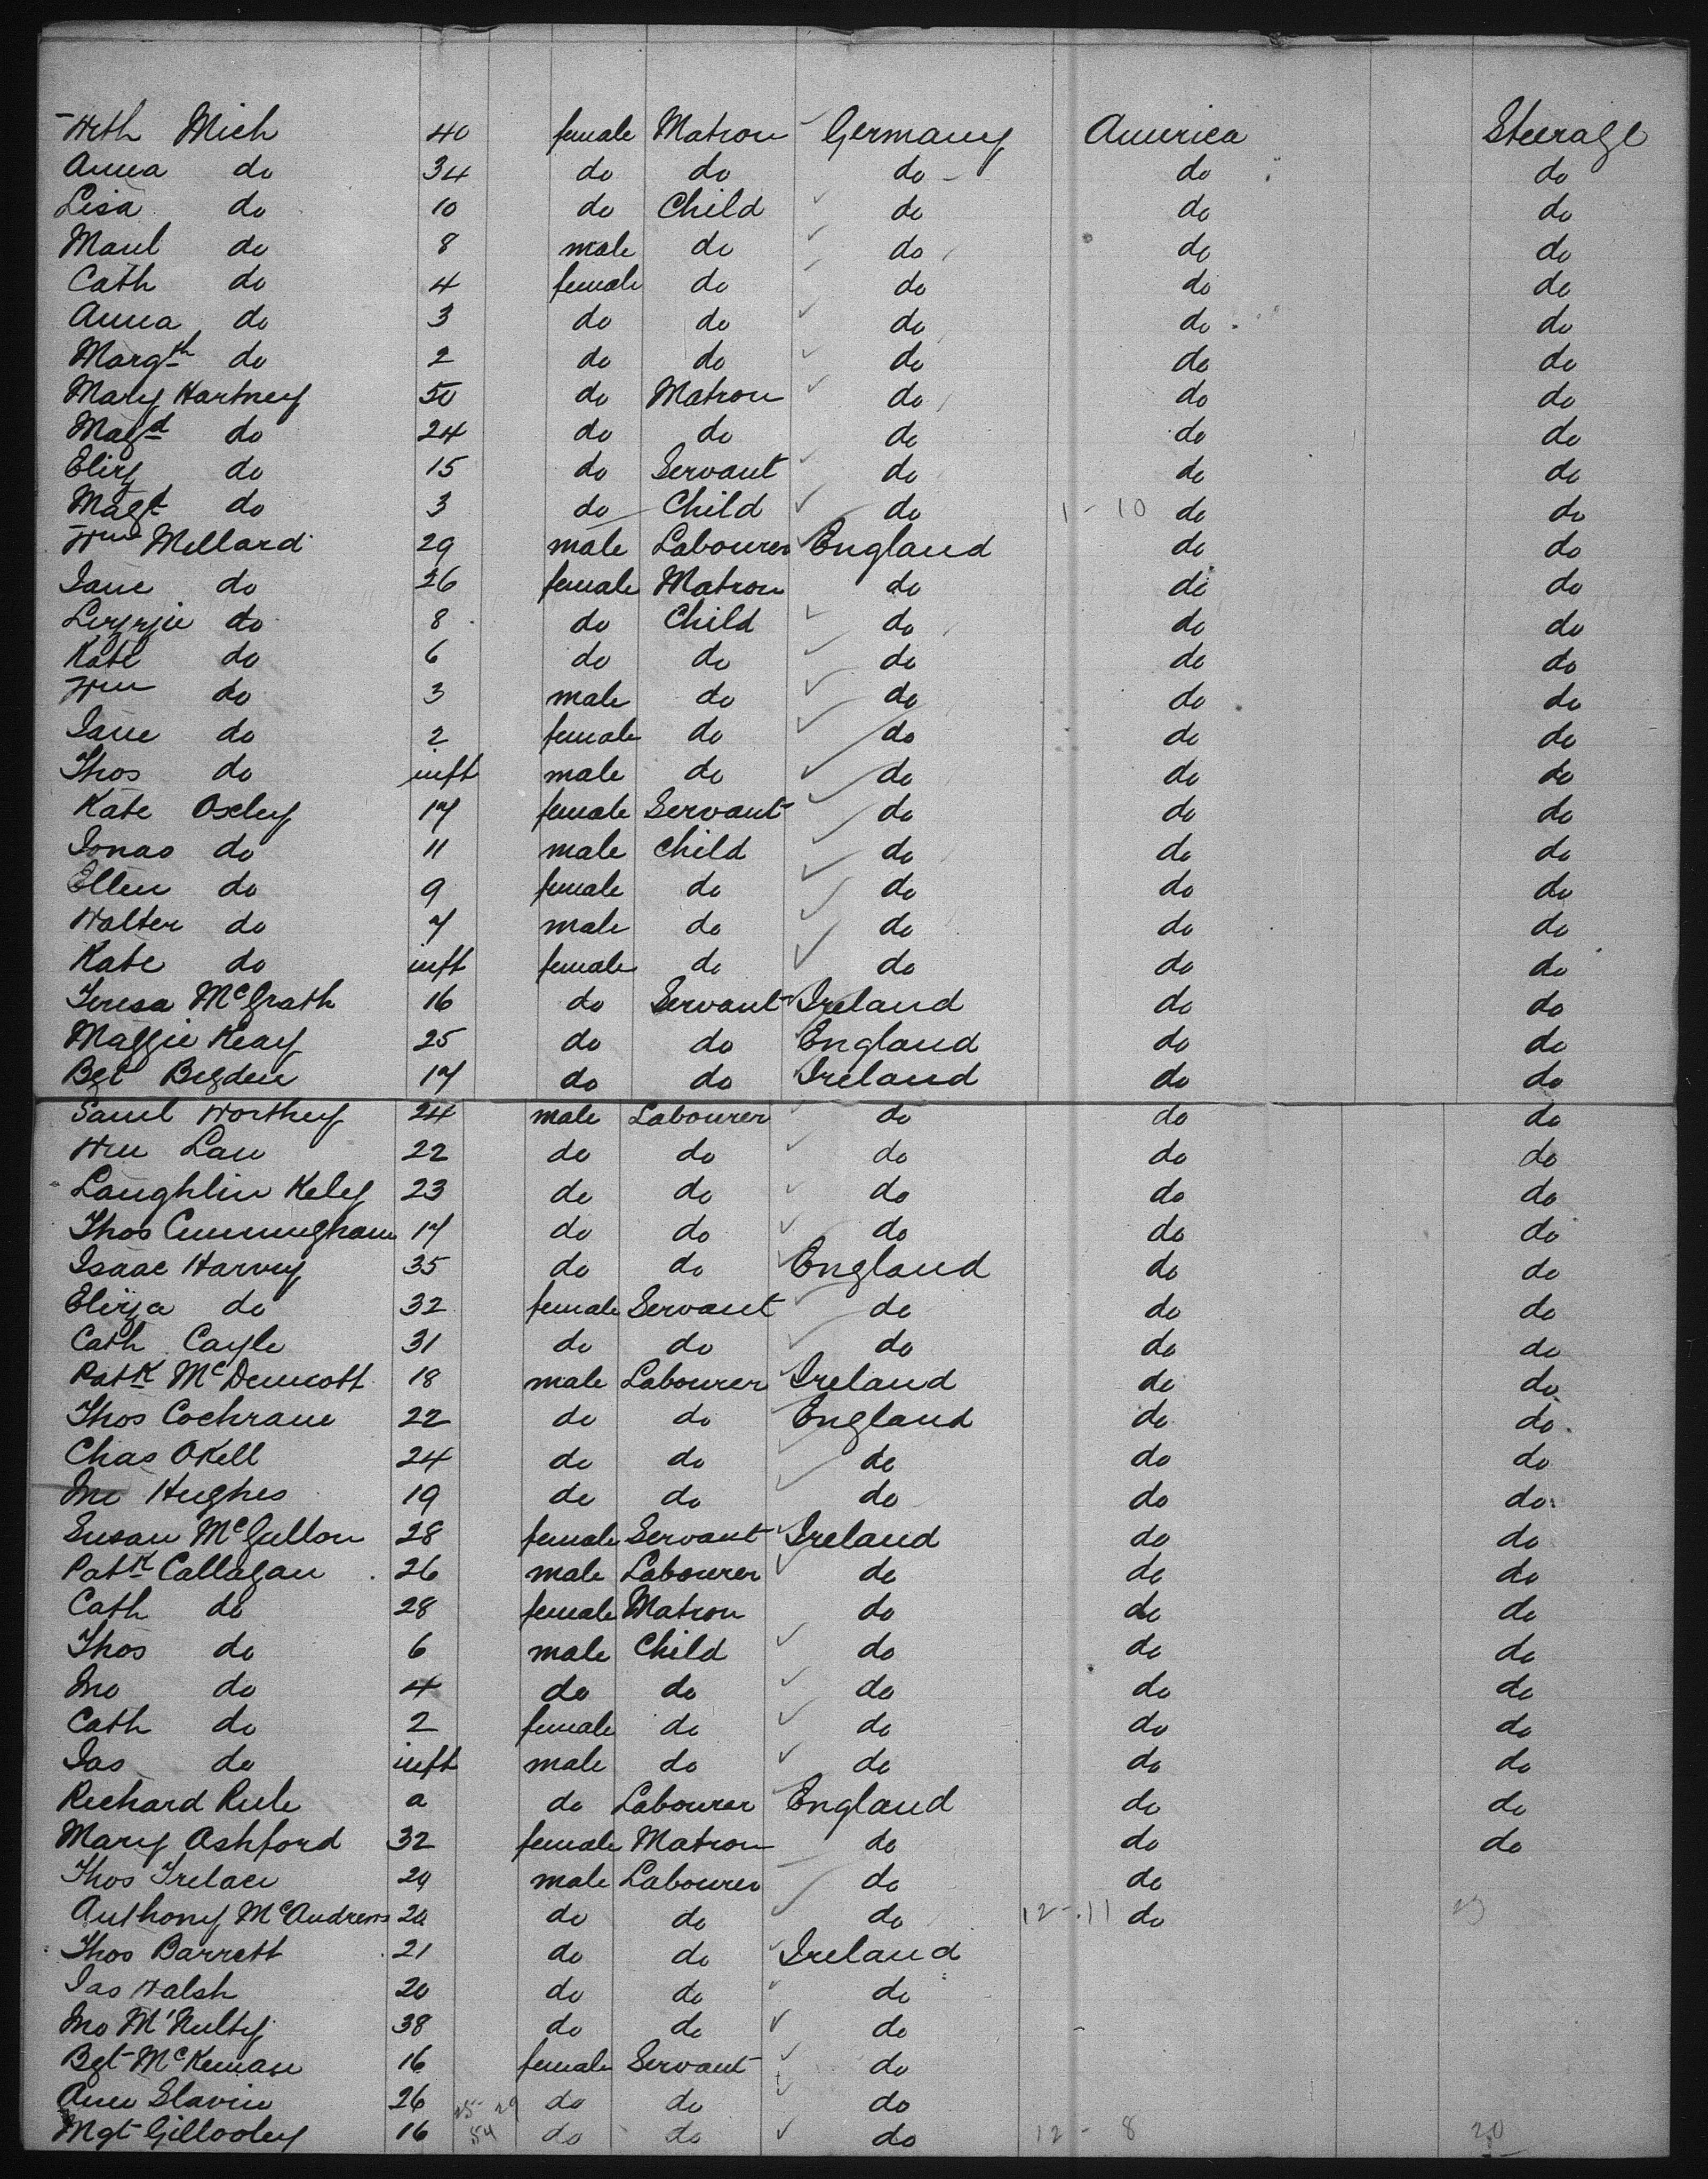 Wth Mich 40 female Matron Germany America Steerage
Anna do 34 do do do do do
Lisa do 10 do Child do do do
Manl do 8 male do do do do
Cath do 4 female do do do do
Anna do 3 do do do do do
Margth do 2 do do do do do
Mary Hartney 50 do Matron do do do
Magd do 24 do do do do do
Eliz do 15 do Servant do do do
Magd do 3 do Child do 1-10 do do
Wm Mellard 29 male Labourer England do do
Jane do 26 female Matron do do do
Lizzie do 8 do Child do do do
Kate do 6 do do do do do
Wm do 3 male do do do do
Jane do 2 female do do do do
Thos do inft male do do do do
Kate Oxley 17 female Servant do do do
Jonas do 11 male Child do do do
Ellen do 9 female do do do do
Walter do 7 male do do do do
Kate do inft female do do do do
Teresa McGrath 16 do Servant Ireland do do
Maggie Keay 25 do do England do do
Bgt Bigden 17 do do Ireland do do
Saml Worthey 24 male Labourer do do do
Wm Law 22 do do do do do
Laughlin Keley 23 do do do do do
Thos Cunningham 17 do do do do do
Isaac Harvey 35 do do England do do
Eliza do 32 female Servant do do do
Cath Cayle 31 do do do do do
Patk McDermott 18 male Labourer Ireland do do
Thos Cochrane 22 do do England do do
Chas Okell 24 do do do do do
Jno Hughes 19 do do do do do
Susan McGullon 28 female Servant Ireland do do
Patk Callagan 26 male Labourer do do do
Cath do 28 female Matron do do do
Thos do 6 male Child do do do
Jno do 4 do do do do do
Cath do 2 female do do do do
Jas do inft male do do do do
Richard Rule a do Labourer England do do
Mary Ashford 32 female Matron do do do
Thos Irelace 29 male Labourer do do
Anthony McAndrews 20 do do do 12-11 do
Thos Barrett 21 do do Ireland
Jas Walsh 20 do do do
Jno M'Nulty 38 do do do
Bgt McKernan 16 female Servant do
Ann Slavin 26 25-29 do do do
Mgt Gillooley 16 54 do do do 12-8 20